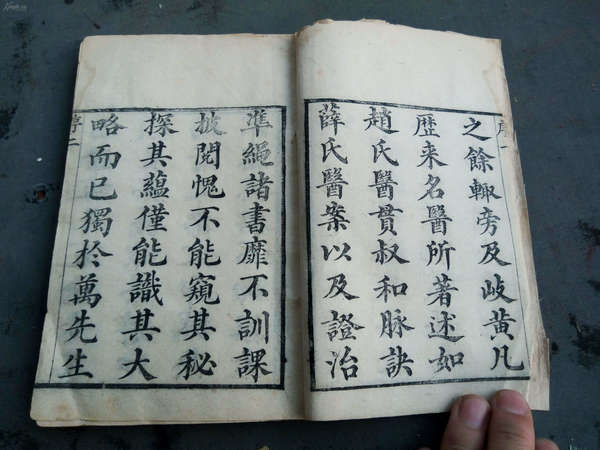 之餘輙旁及岐黃凡
歴来名醫所著述如
趙氏醫貫叔和脉訣
薛氏醫案以及證治
準繩諸書靡不訓課
披閱愧不能窺其秘
探其蘊僅能識其大
略而已獨於萬先生
序二